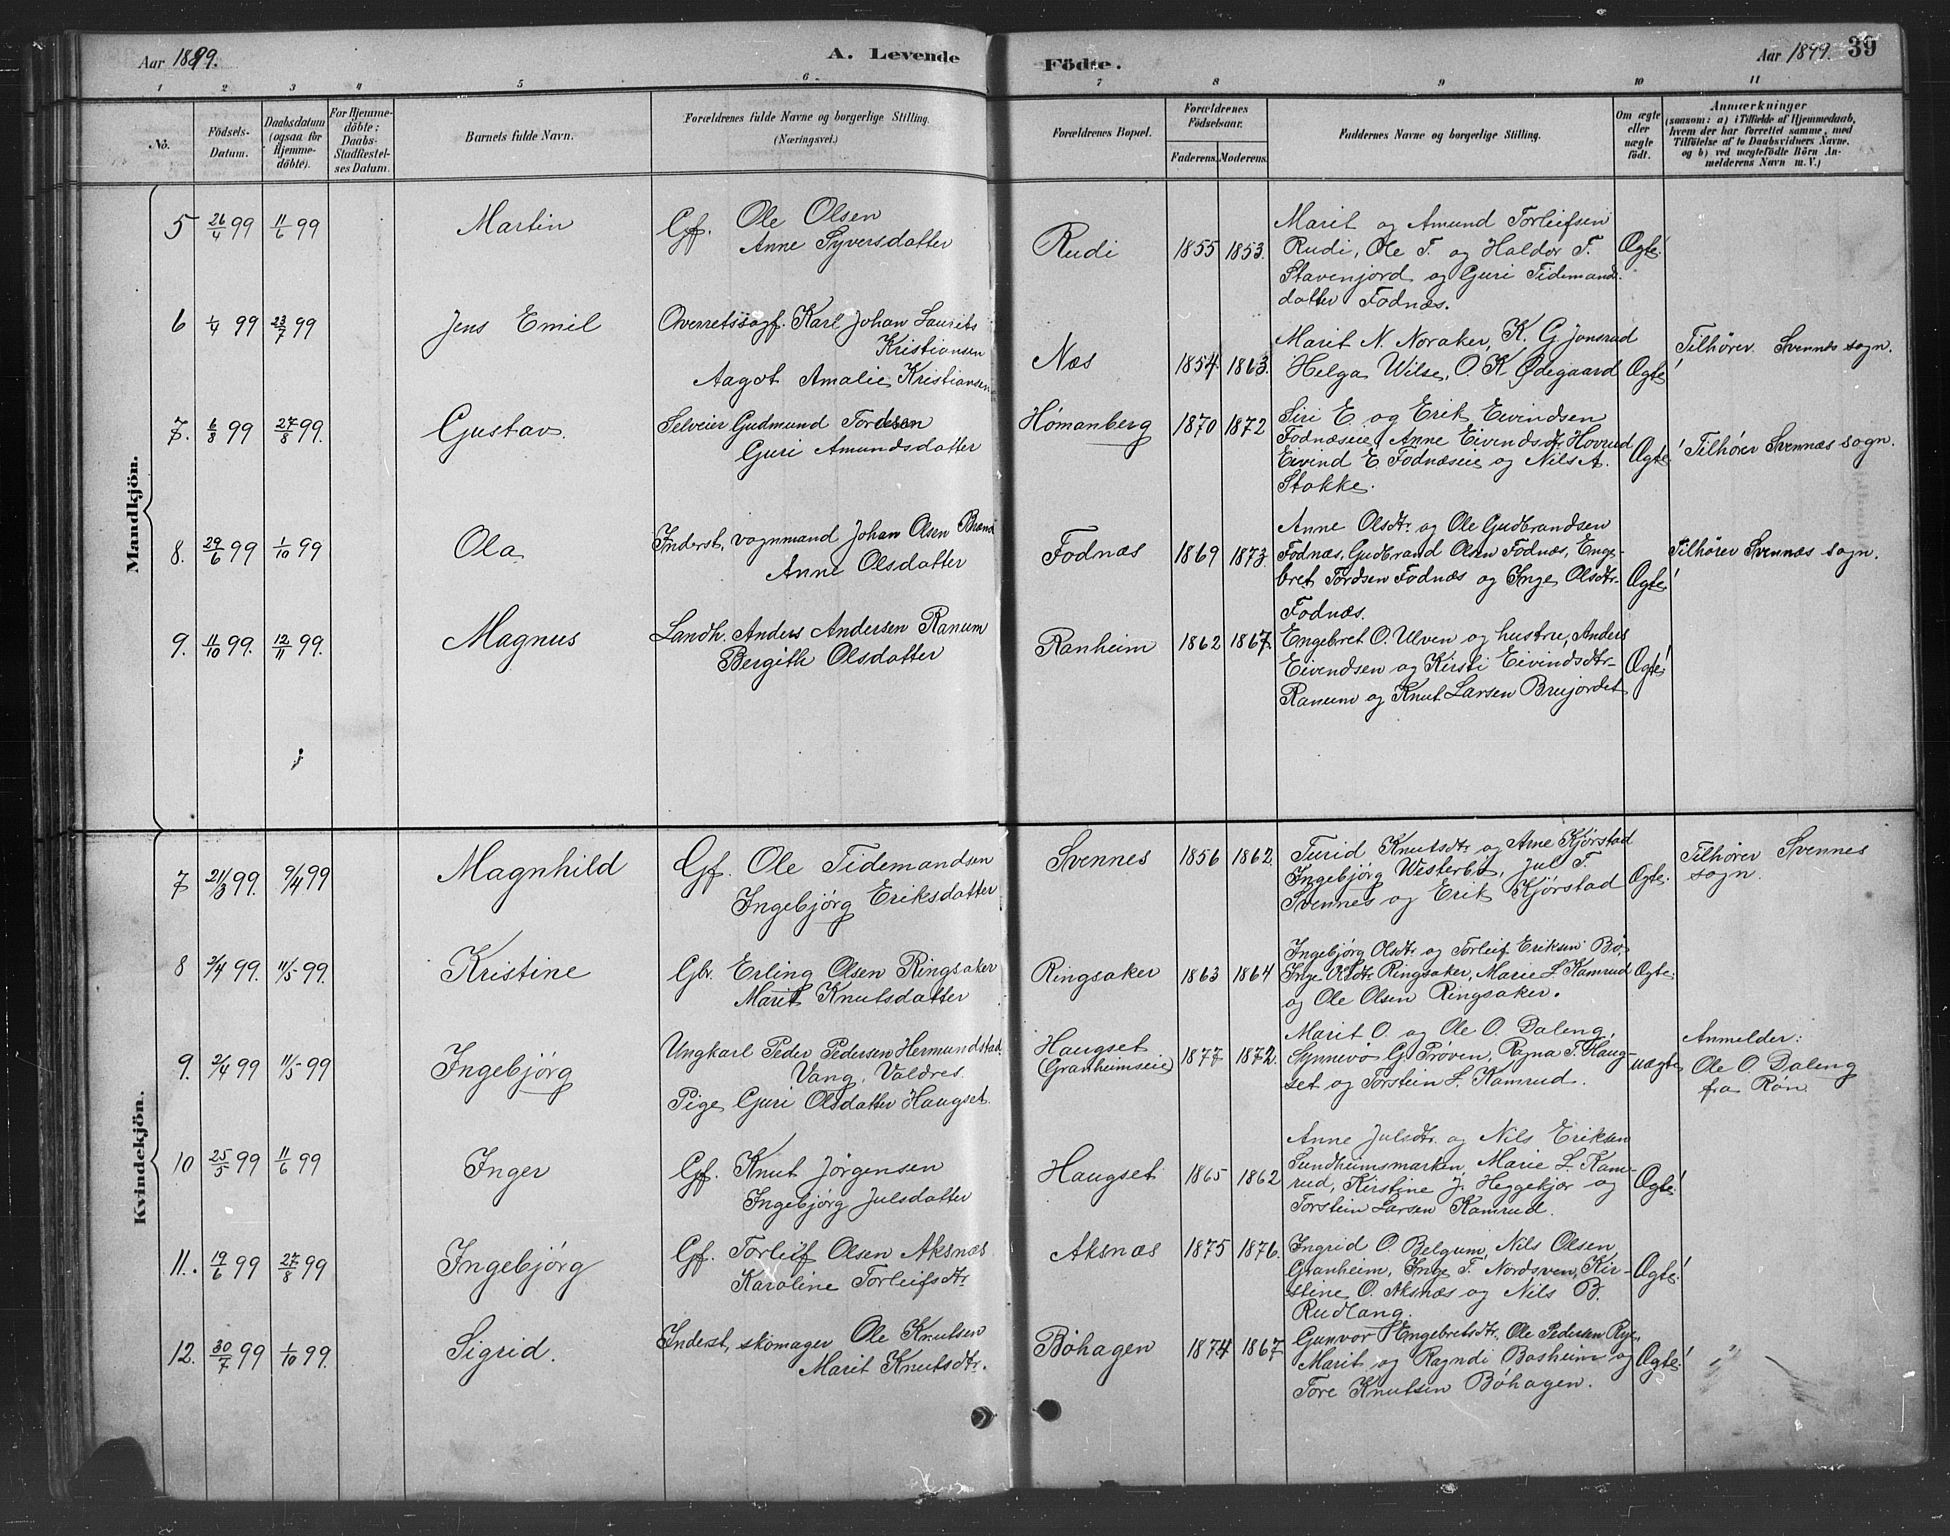 Aar 1899.
A. Levende Födte.
Aar 1899. 39
1 2 3 4 5 6 7 8 9 10 11
No.
Födsels-
Datum.
Daabsdatum
(ogsaa for
Hjemme-
döbte).
For Hjemme-
döbte:
Daabs-
Stadfæstel-
ses Datum.
Barnets fulde Navn.
Forældrenes fulde Navne og borgerlige Stilling.
(Næringsvei.)
Forældrenes Bopæl.
Forældrenes
Födselsaar.
Faderens. Moderens.
Faddernes Navne og borgerlige Stilling.
Om ægte
eller
uægte
födt.
Anmærkninger
(saasom: a) i Tilfælde af Hjemmedaab,
hvem der har forrettet samme, med
Tilföielse af to Daabsvidners Navne,
og b) ved uægtefödte Börn An-
melderens Navn m. V.)
Mandkjön.
5 26/4 99 11/6 99 Martin Gf. Ole Olsen
Anne Syversdatter
Rudi 1855 1853.
Marit og Amund Torleifsen
Rudi, Ole T. og Haldor T.
Stavenjord og Guri Tidemands-
datter Fodnæs.
Ægte!
6 1/4 99 23/7 99 Jens Emil Overretssagf. Karl Johan Laurits
Kristiansen
Aagot Amalie Kristiansen
Næs 1854. 1863.
Marit N. Noraker, K. G. Jonsrud
Helga Wilse, O. K. Ødegaard
Ægte!
Tilhører Svennes sogn.
7. 6/8 99 27/8 99. Gustav. Selveier Gudmund Tordsen
Guri Amundsdatter
Hømanberg 1870 1872
Siri E. og Erik Eivindsen
Fodnæseie, Anne Eivendsdtr Hovrud
Eivind E. Fodnæseie og Nils A.
Stokke.
Ægte!
Tilhører Svennæs sogn.
8. 29/6 99 1/10 99 Ola Inderst, vognmand Johan Olsen
Anne Olsdatter
Fodnæs 1869 1873.
Anne Olsdtr. og Ole Gudbrandsen
Fodnæs, Gudbrand Olsen Fodnæs, Enge-
bret Tordsen Fodnæs og Inge Olsdtr.
Fodnæs.
Ægte!
Tilhører Svennæs sogn.
9. 11/10 99. 12/11 99. Magnus Landh. Anders Andersen Ranum
Bergith Olsdatter
Ranheim 1862 1867.
Engebret O. Ulven og hustru, Anders
Eivendsen og Kirsti Eivindsdtr-
Ranum og Knut Larsen Brujordet
Ægte!
Kvindekjön.
7 21/3 99. 9/4 99 Magnhild Gf. Ole Tidemandsen
Ingebjørg Eriksdatter
Svennes 1856 1862.
Turid Knutsdtr og Arne Kjørstad
Ingebjørg Westerbø, Jul T.
Svennes og Erik Kjørstad
Ægte.
Tilhører Svennes
sogn.
8 2/4 99. 11/5 99. Kristine Gbr. Erling Olsen Ringsaker
Marit Knutsdatter
Ringsaker 1863 1864
Ingebjørg Olsdtr og Torleif Eriksen Bø,
Inge Olsdtr Ringsaker, Marie L. Kamrud
og Ole Olsen Ringsaker.
Ægte.
9. 2/4 99 11/5 99 Ingebjörg Ungkarl Peder Pedersen Hermundstad
Vang, Valdres.
Pige Guri Olsdatter Haugset.
Haugset
(Granheimseie)
1877 1872.
Marit O. og Ole O. Daleng,
Synnevø G. Prøven, Ragna T. Haug-
set og Torstein L. Kamrud.
uægte
Anmelder:
Ole O. Daleng
fra Røn.
10 25/5 99 11/6 99 Inger Gf. Knut Jørgensen
Ingebjørg Julsdatter
Haugset 1865 1862
Anne Julsdtr. og Nils Eriksen
Sundheimsmarken, Marie L. Kam-
rud, Kirstine J. Heggekjær og
Torstein Larsen Kamrud.
Ægte!
11. 19/6 99 27/8 99 Ingebjörg Gf. Torleif Olsen Aksnæs
Karoline Torleifsdtr.
Aksnæs 1875 1876.
Ingrid O. Belgum, Nils Olsen
Granheim, Inge T. Nordsven, Kir-
stine O. Aksnæs og Nils B.
Rudlang.
Ægte!
12. 30/7 99 1/10 99. Sigrid. Inderst, skomager Ole Knutsen
Marit Knutsdtr.
Bøhagen 1874 1867
Gunvor Engebretsdtr, Ole Pedersen Rye,
Marit og Ragndi Bosheim og
Tore Knutsen Bøhagen.
Ægte!